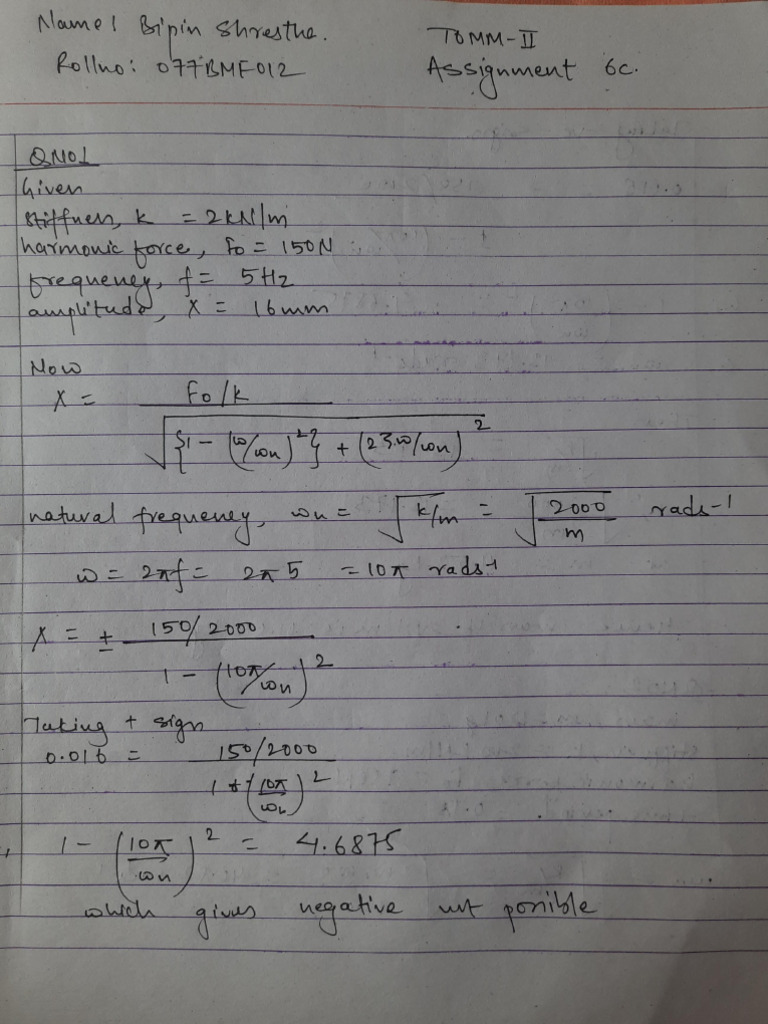 Name: Bipin Shrestha.
TOMM-II
Rollno: 077BMF012
Assignment 6c.
QNO1
Given
stiffness, k = 2kN/m
harmonic force, Fo = 150N
frequency, f = 5Hz
amplitude, X = 16mm
Now
X = Fo/k
√{1 - (ω/ωn)²} + (2ξω/ωn)²
natural frequency, ωn = √k/m = √2000/m rads-1
ω = 2πf = 2π5 = 10π rads-1
X = ± 150/2000
1 - (10π/ωn)²
Taking + sign
0.016 = 150/2000
1 + (10π/ωn)²
1 - (10π/ωn)² = 4.6875
which gives negative not possible